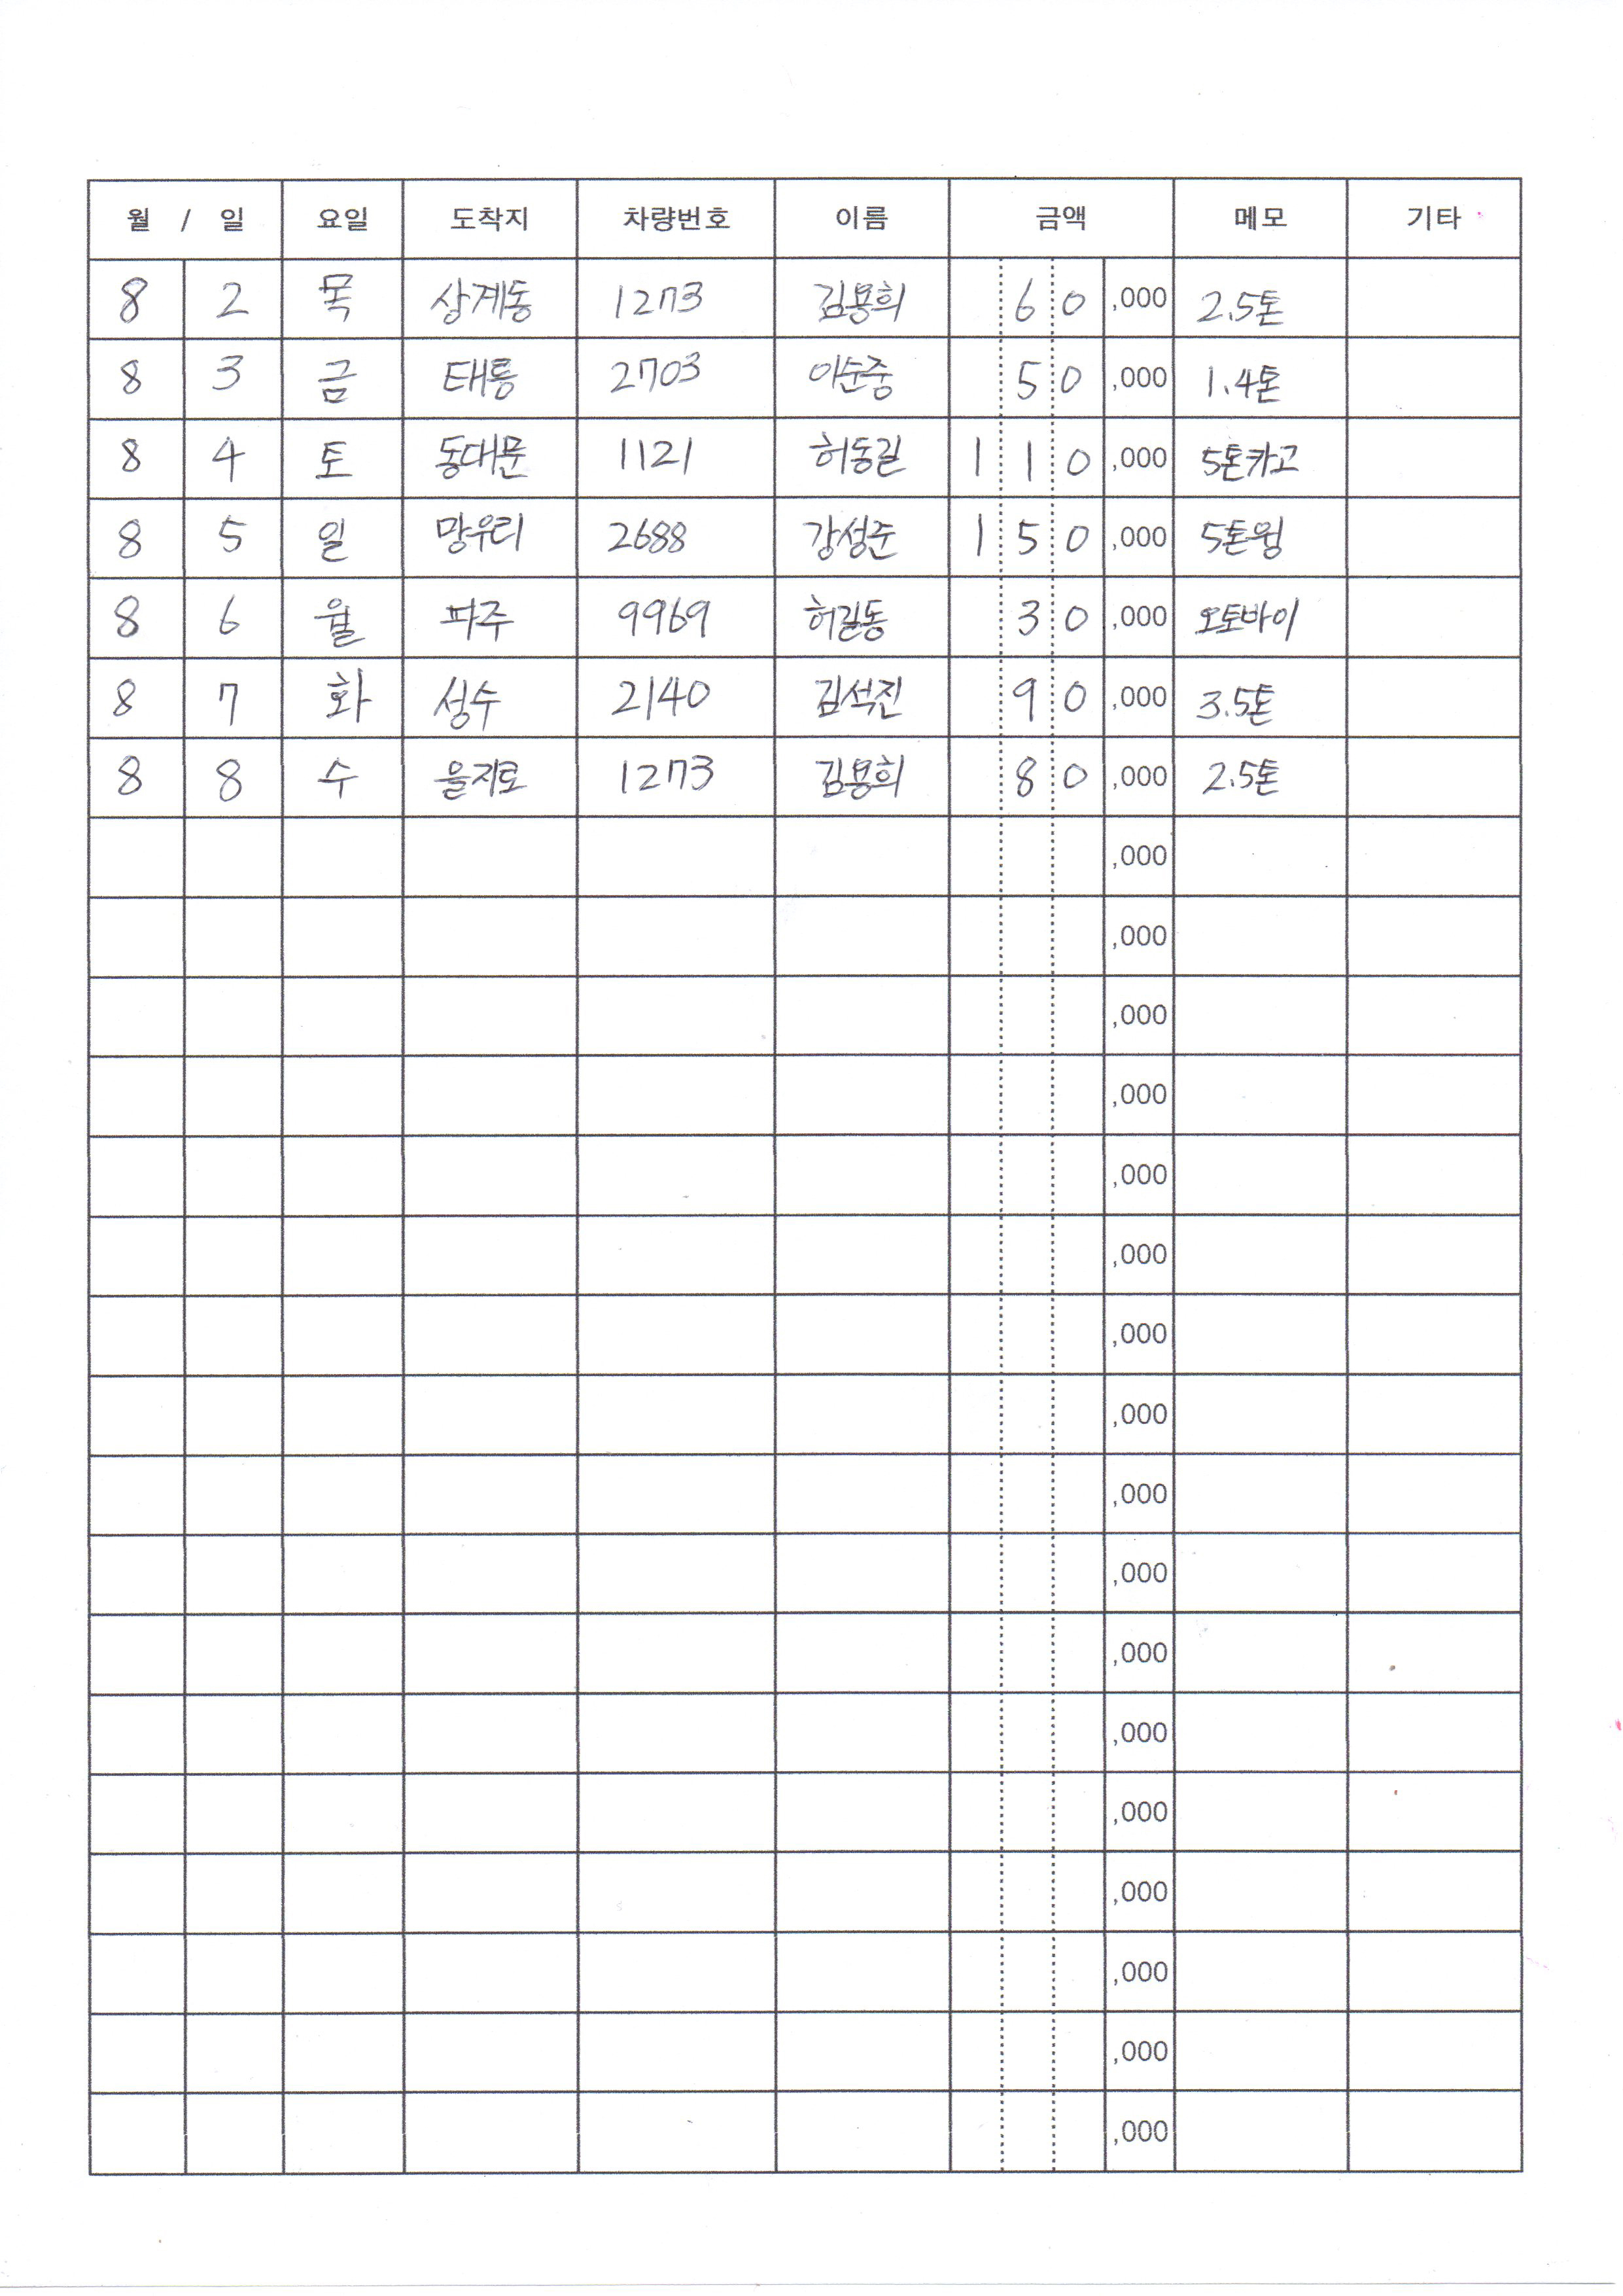 월 / 일 요일 도착지 차량번호 이름 금액 메모 기타
8 2 목 상계동 1273 김용희 60,000 2.5톤
8 3 금 태릉 2703 이순중 50,000 1.4톤
8 4 토 동대문 1121 허동길 110,000 5톤카고
8 5 일 망우리 2688 강성준 150,000 5톤윙
8 6 월 파주 9969 허길동 30,000 오토바이
8 7 화 성수 2140 김석진 90,000 3.5톤
8 8 수 을지로 1273 김용희 80,000 2.5톤
,000
,000
,000
,000
,000
,000
,000
,000
,000
,000
,000
,000
,000
,000
,000
,000
,000